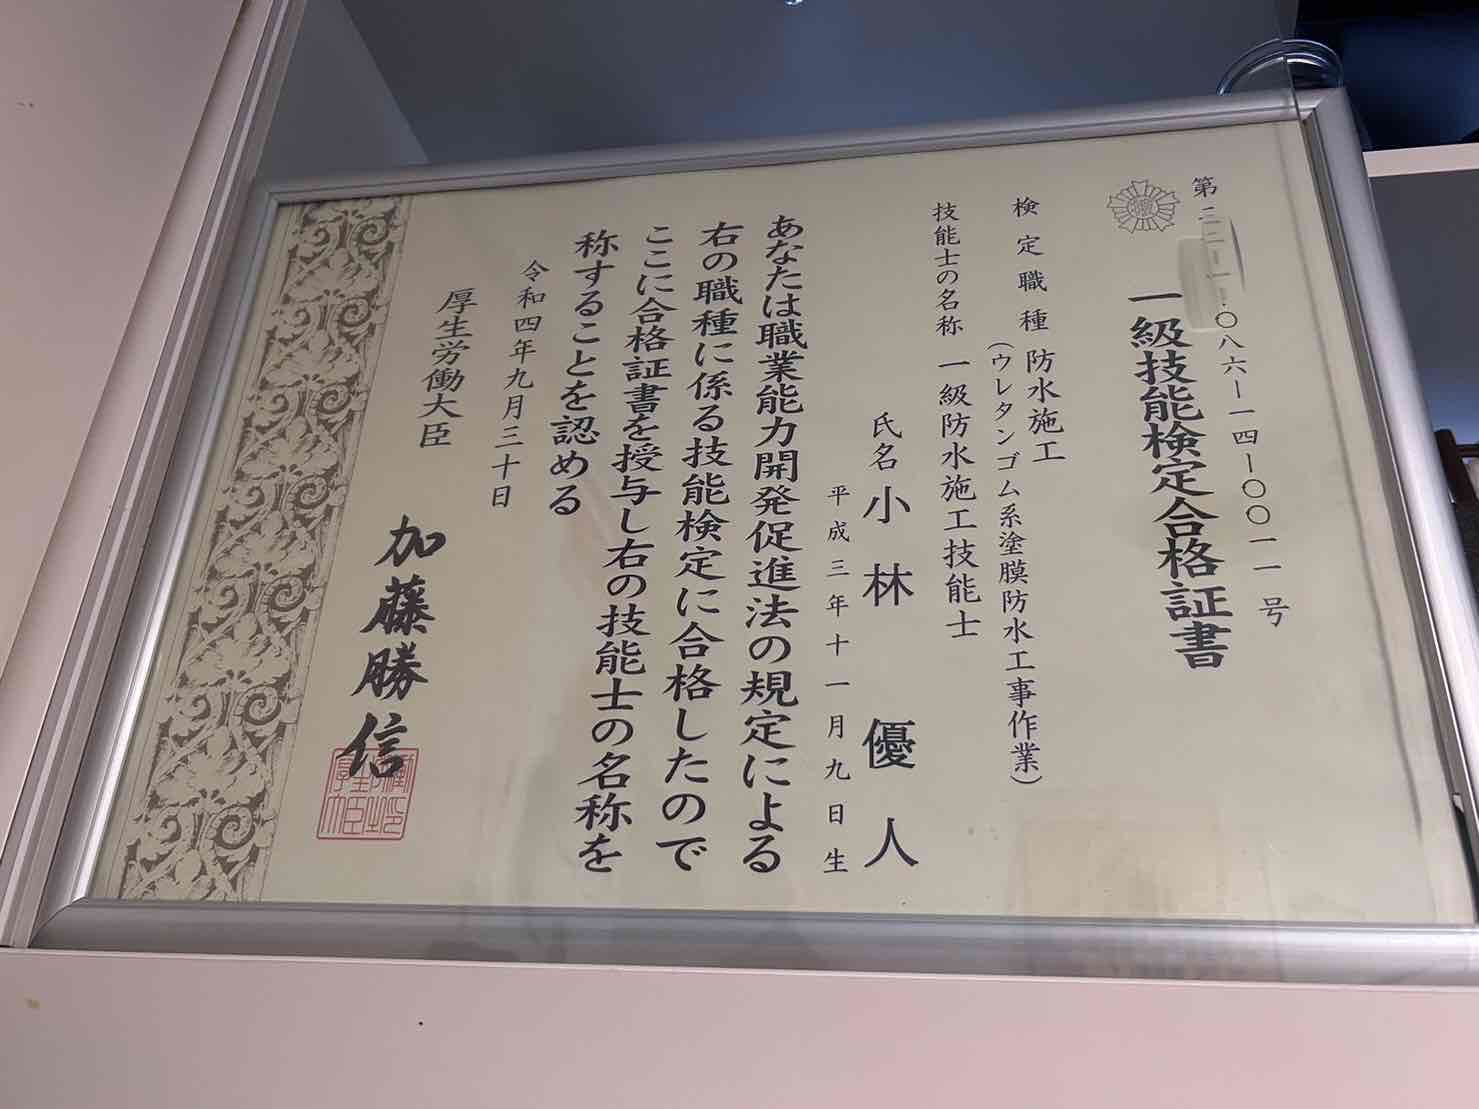 第二二一一・〇八六ー一四ー〇〇一一号
一級技能検定合格証書
検定職種 防水施工
（ウレタンゴム系塗膜防水工事作業）
技能士の名称 一級防水施工技能士
氏名 小林 優人
平成三年十一月九日生
あなたは職業能力開発促進法の規定による
右の職種に係る技能検定に合格したので
ここに合格証書を授与し右の技能士の名称を
称することを認める
令和四年九月三十日
厚生労働大臣
加藤勝信